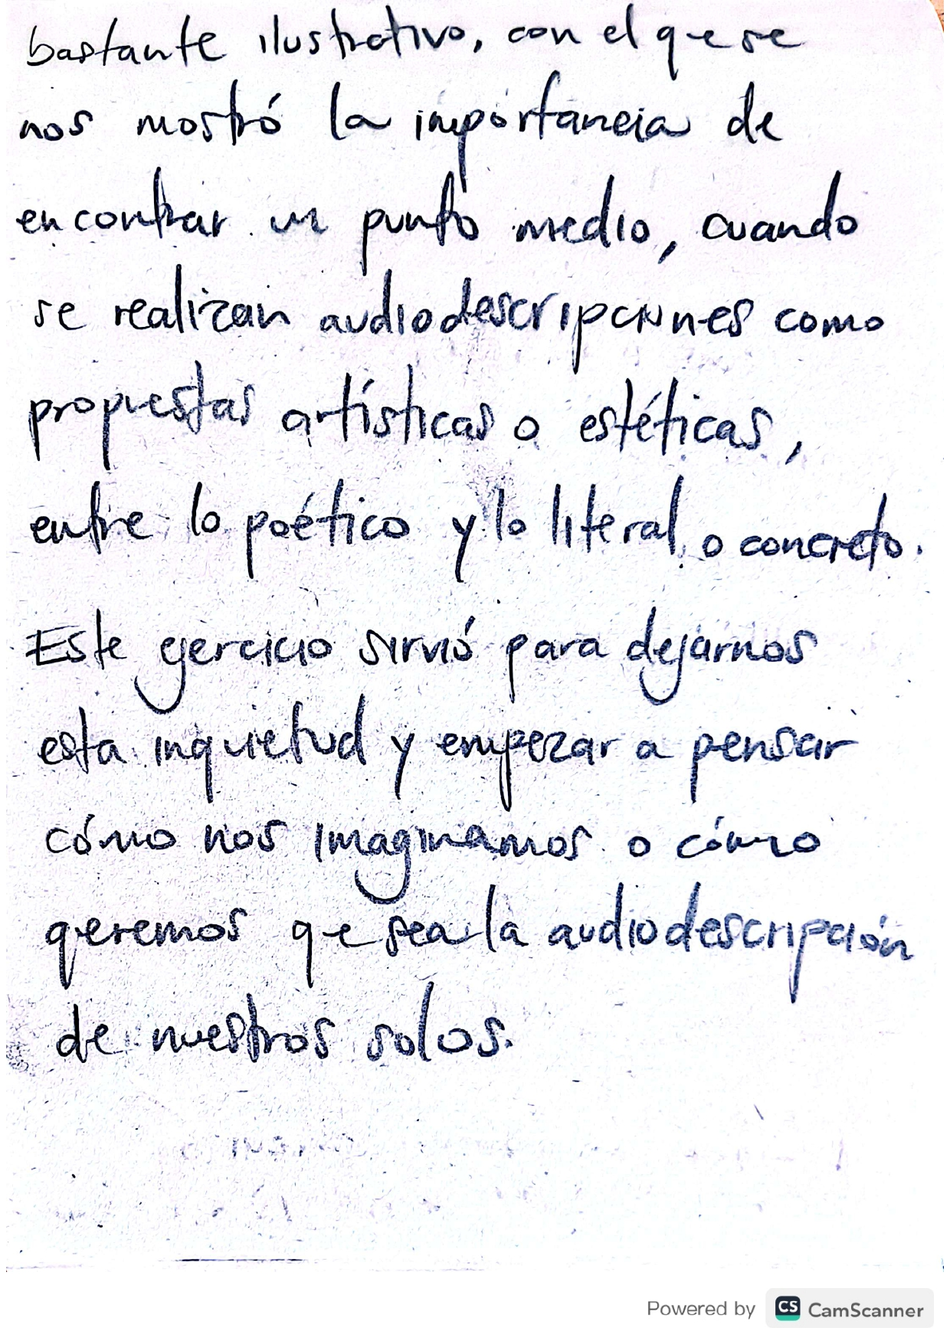 bastante ilustrativo, con el que se
nos mostró la importancia de
encontrar un punto medio, cuando
se realizan audiodescripciones como
propuestas artísticas o estéticas,
entre lo poético y lo literal o concreto.
Este ejercicio sirvió para dejarnos
esta inquietud y empezar a pensar
cómo nos imaginamos o cómo
queremos que sea la audiodescripción
de nuestros solos.
Powered by CS CamScanner